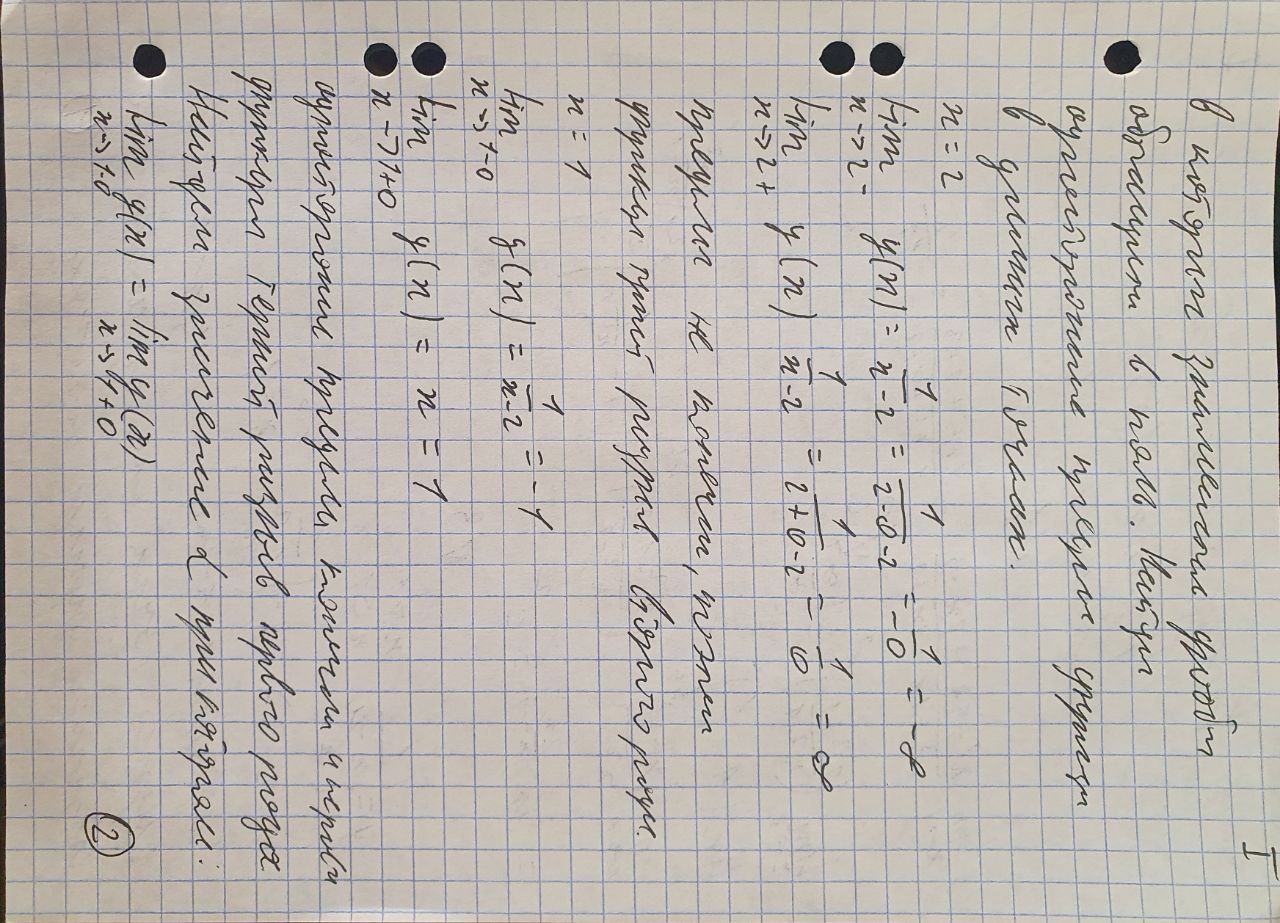 I
в которых знаменатель дроби
обращается в ноль. Найдем
односторонние пределы функции
в данных точках.
x = 2
lim x→2- y(x) = 1/(x-2) = 1/(2-0-2) = 1/(-0) = -∞
lim x→2+ y(x) 1/(x-2) = 1/(2+0-2) = 1/0 = ∞
пределы не конечны, поэтому
функция терпит разрыв второго рода.
x = 1
lim x→1-0 y(x) = 1/(x-2) = -1
lim x→1+0 y(x) = x = 1
односторонние пределы конечны и неравны
функция терпит разрыв первого рода
Найдем значение α при котором:
lim x→1-0 y(x) = lim x→1+0 y(x)
2